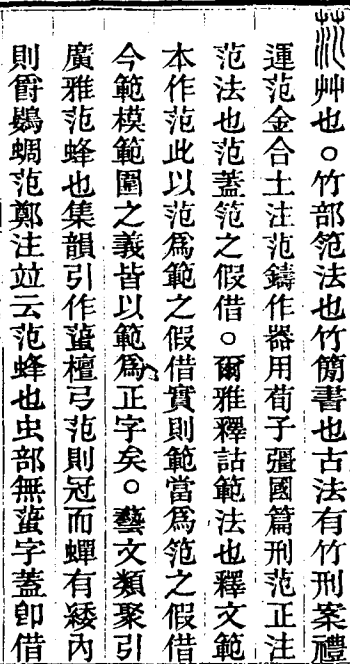 范艸也○竹部笵法也竹𥳑書也古法有竹刑案禮
運范金合土注范鑄作器用荀子彊國篇刑范正注
范法也范蓋笵之假借○爾雅釋詁範法也釋文範
本作范此以范爲範之假借實則範當爲笵之假借
今範模範圍之義皆以範爲正字矣○藝文類聚引
廣雅范蜂也集韻引作䗊檀弓范則冠而蟬有緌內
則爵鷃蜩范鄭注竝云范蜂也虫部無䗊字蓋卽借